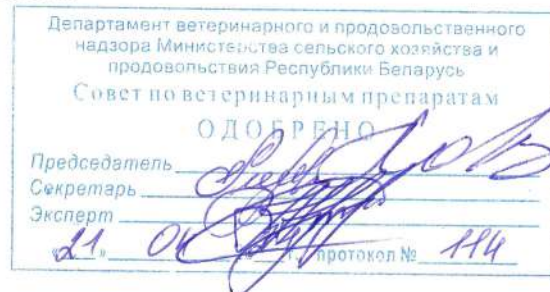 Департамент ветеринарного и продовольственного
надзора Министерства сельского хозяйства и
продовольствия Республики Беларусь
Совет по ветеринарным препаратам
ОДОБРЕНО
Председатель
Секретарь
Эксперт
"21" 04 протокол № 114